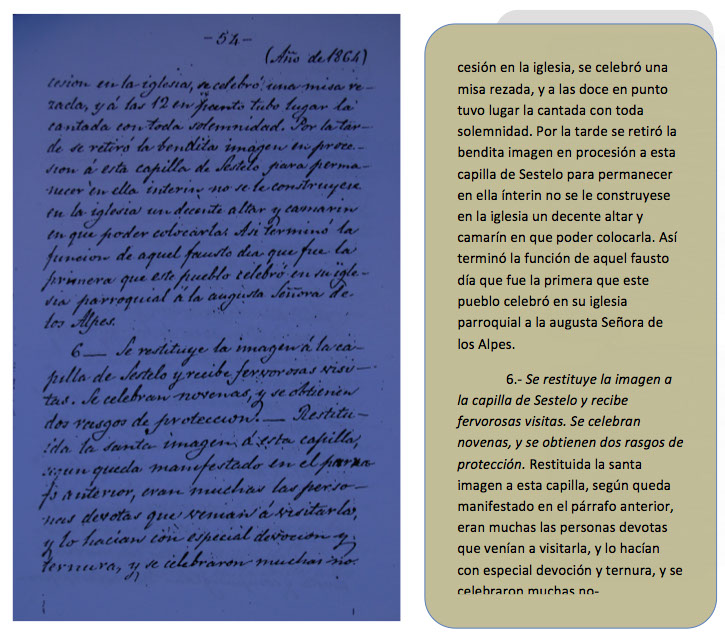 -54-
(Año de 1864)
cesion en la iglesia, se celebró una misa re-
zada, y á las 12 en punto tubo lugar la
cantada con toda solemnidad. Por la tar-
de se retiró la bendita imágen en proce-
sion á esta capilla de Sestelo para perma-
necer en ella interin no se le construyese
en la iglesia un decente altar y camarin
en que poder colocarla. Asi terminó la
funcion de aquel fausto dia que fue la
primera que este pueblo celebró en su igle-
sia parroquial á la augusta Señora de
los Alpes.
6— Se restituye la imagen á la ca-
pilla de Sestelo y recibe fervorosas visi-
tas. Se celebran novenas, y se obtienen
dos rasgos de proteccion.— Restitui-
da la santa imagen á esta capilla,
segun queda manifestado en el parra-
fo anterior, eran muchas las perso-
nas devotas que venian á visitarla,
y lo hacian con especial devocion y
ternura, y se celebraron muchas no-
cesión en la iglesia, se celebró una
misa rezada, y a las doce en punto
tuvo lugar la cantada con toda
solemnidad. Por la tarde se retiró la
bendita imagen en procesión a esta
capilla de Sestelo para permanecer
en ella ínterin no se le construyese
en la iglesia un decente altar y
camarín en que poder colocarla. Así
terminó la función de aquel fausto
día que fue la primera que este
pueblo celebró en su iglesia
parroquial a la augusta Señora de
los Alpes.
6.- Se restituye la imagen a
la capilla de Sestelo y recibe
fervorosas visitas. Se celebran
novenas, y se obtienen dos rasgos de
protección. Restituida la santa
imagen a esta capilla, según queda
manifestado en el párrafo anterior,
eran muchas las personas devotas
que venían a visitarla, y lo hacían
con especial devoción y ternura, y se
celebraron muchas no-